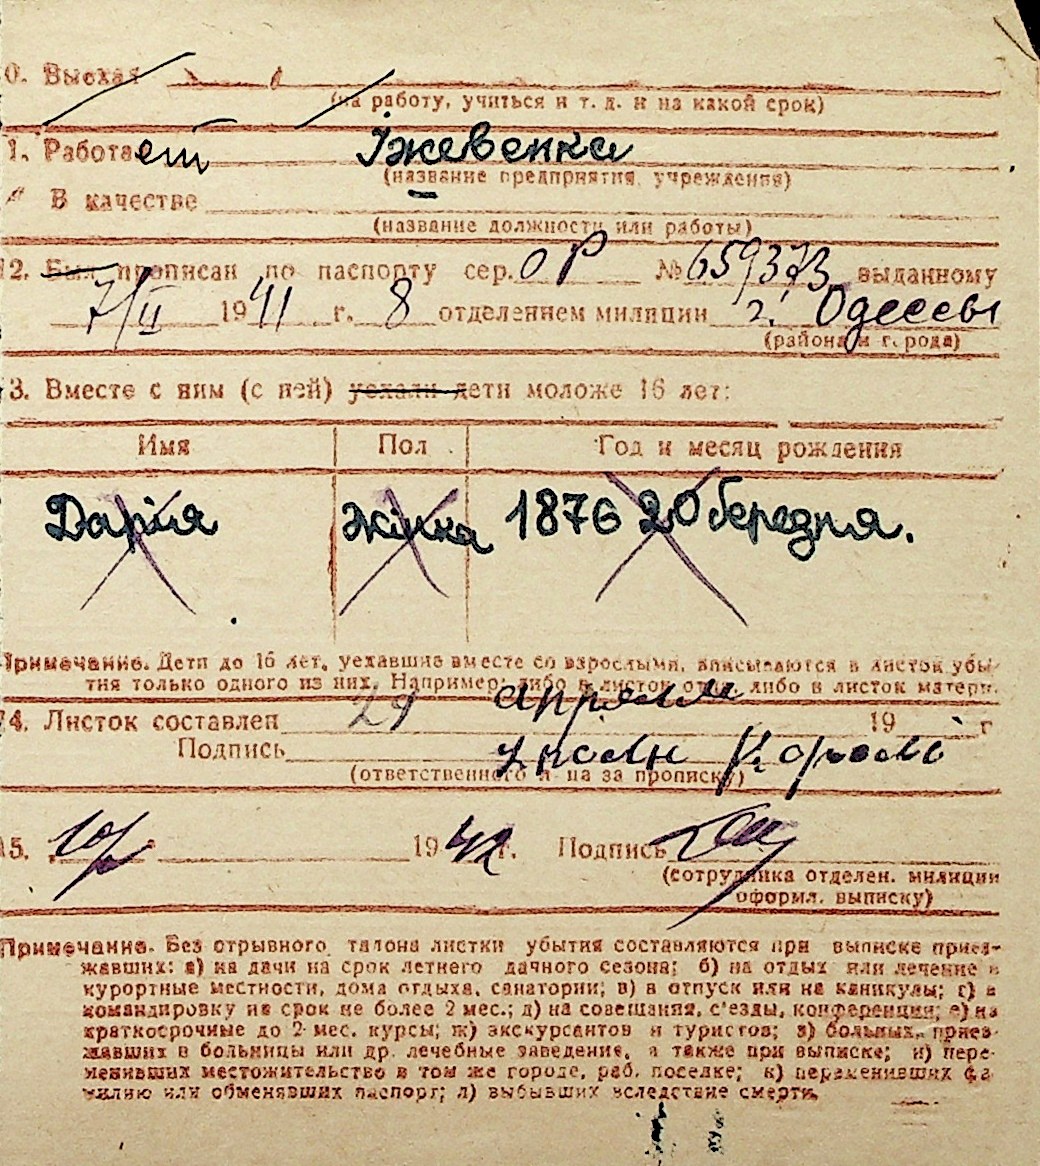 0. Выехал
(на работу, учиться и т. д. и на какой срок)
1. Работает Їжевенка
(название предприятия, учреждения)
В качестве
(название должности или работы)
12. Был прописан по паспорту сер. ОР № 659373 выданному
7/II 1941 г. 8 отделением милиции г. Одессы
(района и города)
3. Вместе с ним (с ней) уехали дети моложе 16 лет:
Имя Пол Год и месяц рождения
Дарія жінка 1876 20 березня.
Примечание. Дети до 16 лет, уехавшие вместе со взрослыми, вписываются в листок убы-
тия только одного из них. Например: либо в листок отца, либо в листок матери.
14. Листок составлен 29 апреля 19 г
Подпись Король
(ответственного лица за прописку)
15. 10/ 1942 г. Подпись
(сотрудника отделен. милиции
оформл. выписку)
Примечание. Без отрывного талона листки убытия составляются при выписке приез-
жавших: а) на дачи на срок летнего дачного сезона; б) на отдых или лечение в
курортные местности, дома отдыха, санатории; в) в отпуск или на каникулы; г) в
командировку на срок не более 2 мес.; д) на совещания, с'езды, конференции; е) на
краткосрочные до 2-мес. курсы; ж) экскурсантов и туристов; з) больных, приез-
жавших в больницы или др. лечебные заведение, а также при выписке; и) пере-
менивших местожительство в том же городе, раб. поселке; к) переменивших фа-
милию или обменявших паспорт; л) выбывших вследствие смерти.